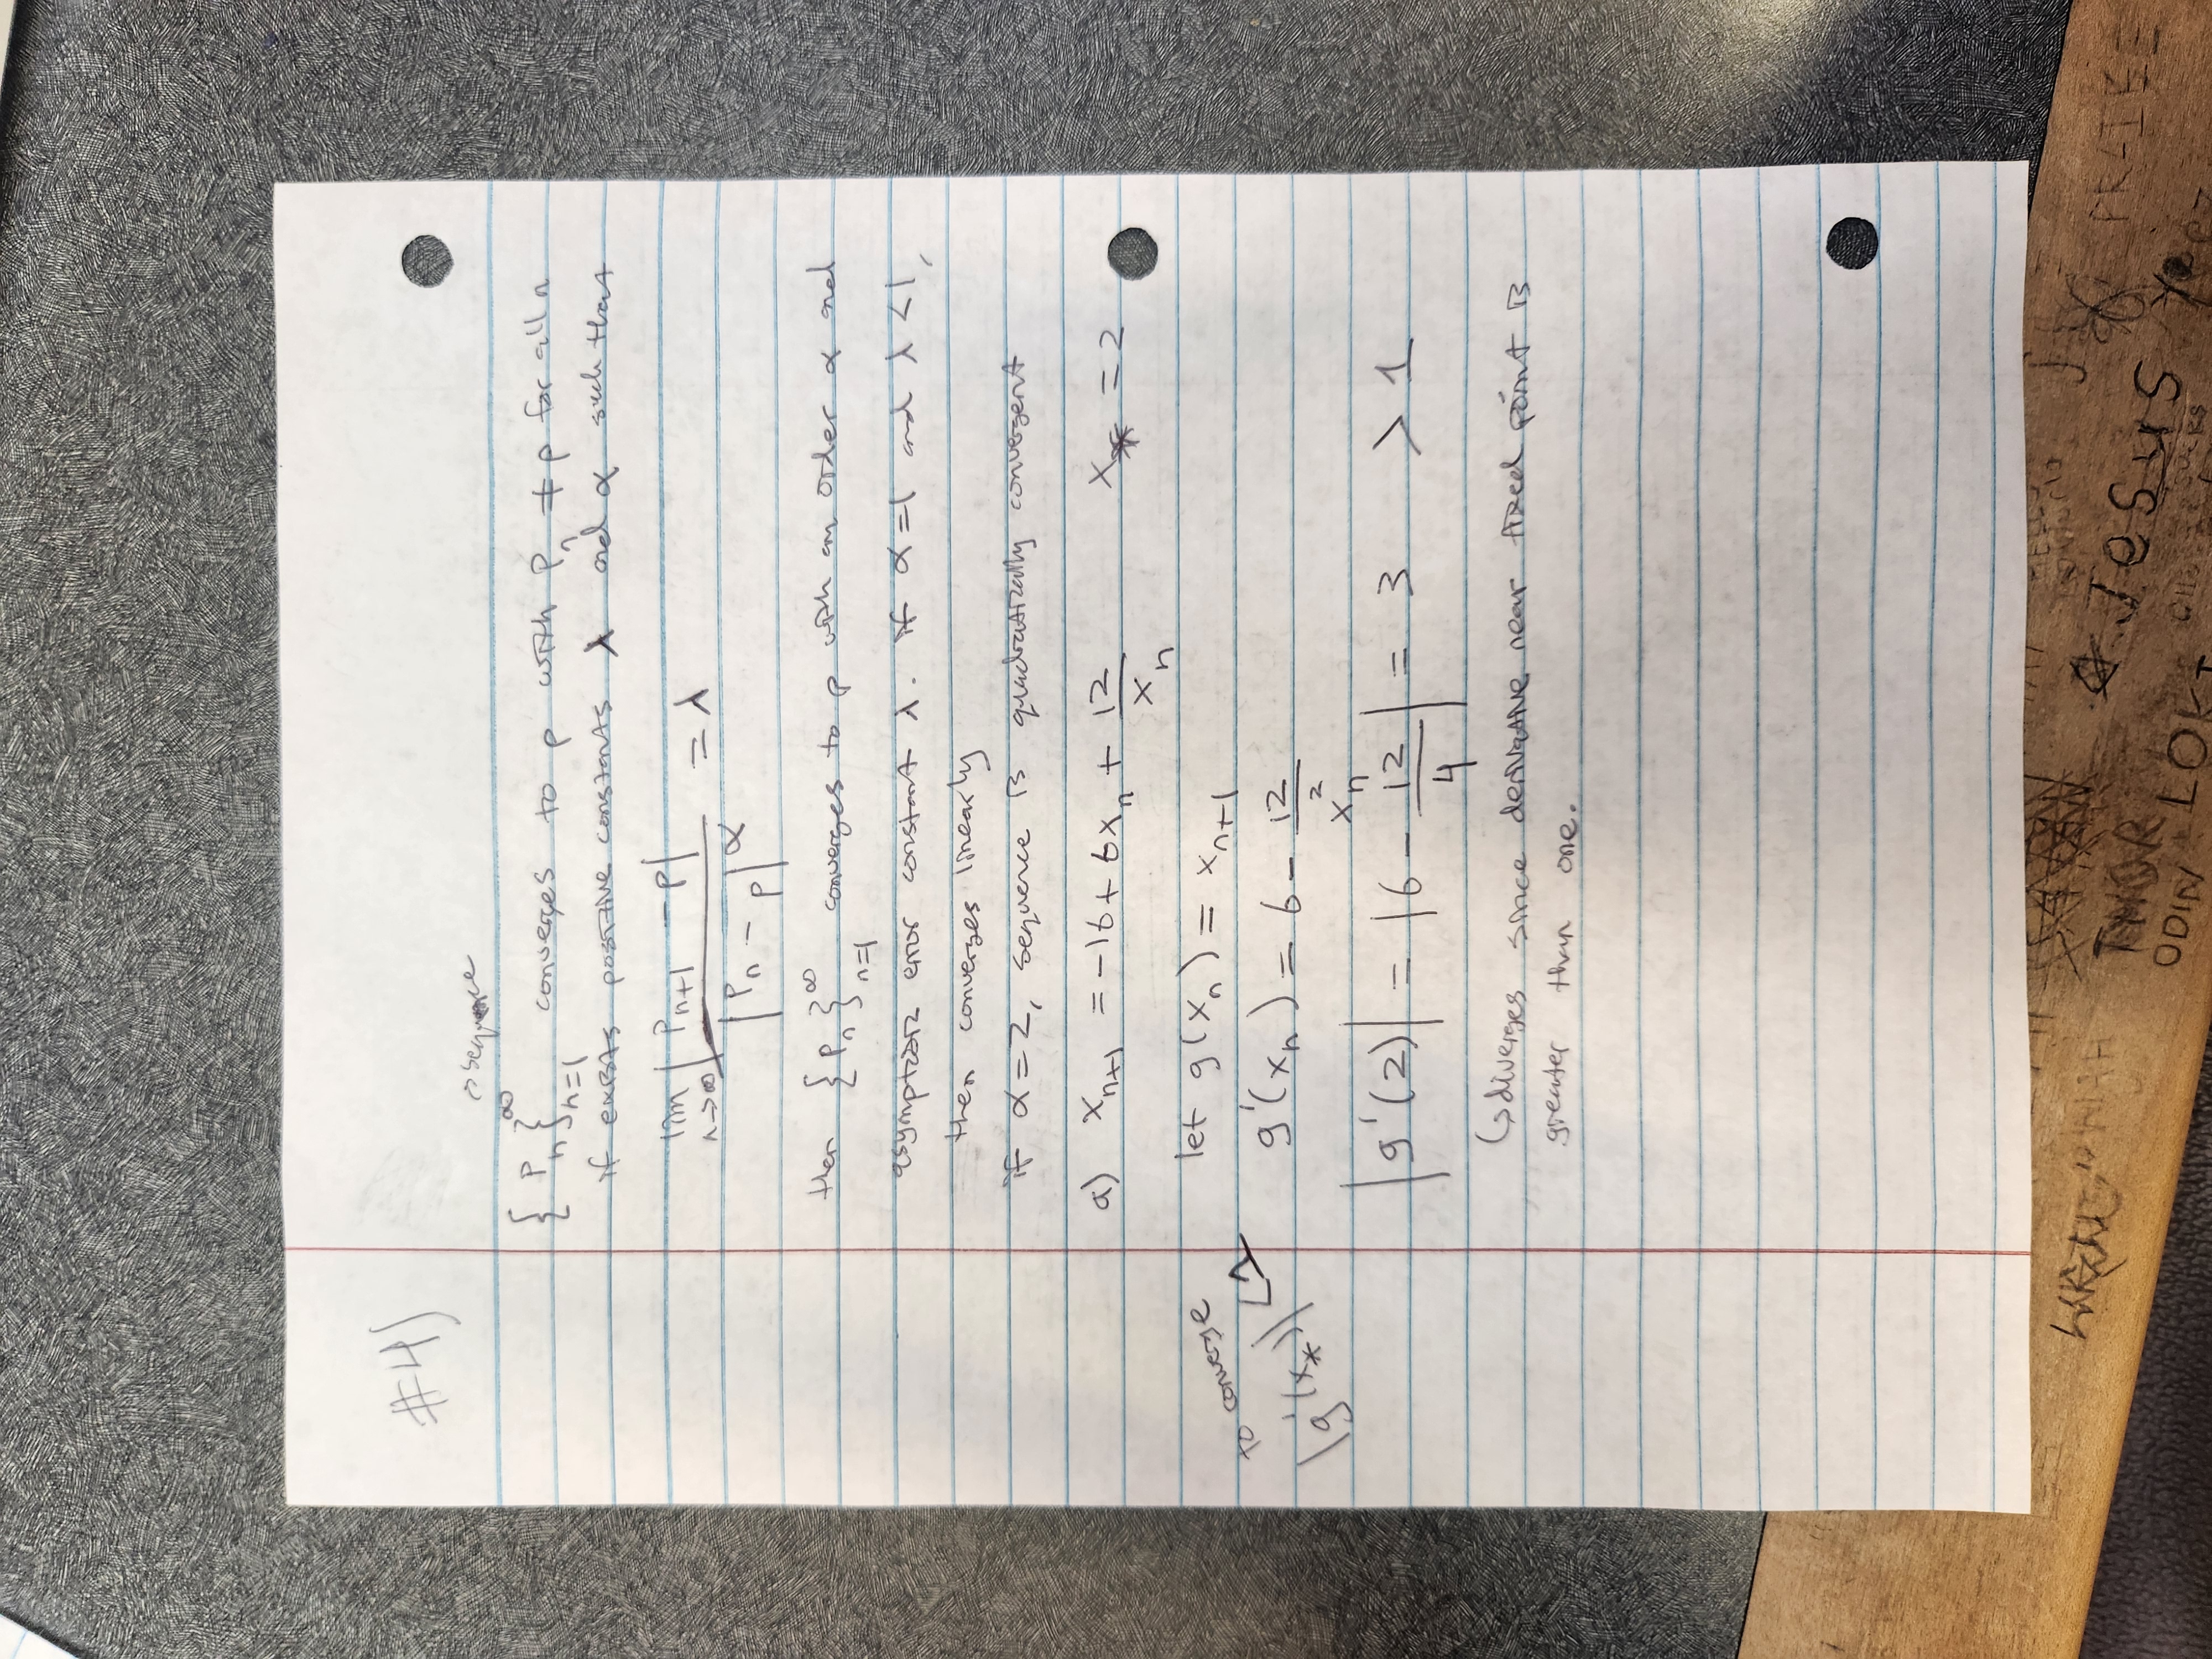 #4)
→ sequence
{P_n}_{n=1}^∞ converges to p with P_n ≠ p for all n
if exists positive constants λ and α such that
lim_{n→∞} |P_{n+1} - p| / |P_n - p|^α = λ
then {P_n}_{n=1}^∞ converges to p with an order α and
asymptotic error constant λ. if α=1 and λ<1,
then converges linearly
if α=2, sequence is quadratically convergent
a) x_{n+1} = -16 + 6x_n + 12/x_n x_* = 2
let g(x_n) = x_{n+1}
to converge
|g'(x_*)| < 1
g'(x_n) = 6 - 12/x_n^2
|g'(2)| = |6 - 12/4| = 3 > 1
↳ diverges since derivative near fixed point is
greater than one.
HELLO
THOR
Jesus
ODIN
LOKI